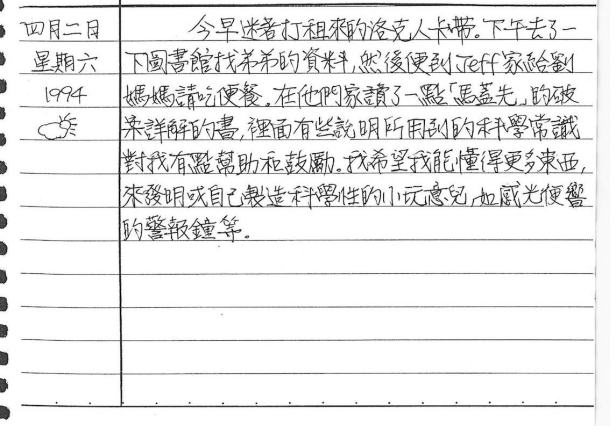 四月二日
星期六
1994
今早迷著打租來的洛克人卡帶。下午去了一
下圖書館找弟弟的資料，然後便到Jeff家給劉
媽媽請吃便餐。在他們家讀了一點「馬蓋先」的破
案詳解的書，裡面有些說明所用到的科學常識
對我有點幫助和鼓勵。我希望我能懂得更多東西，
來發明或自己製造科學性的小玩意兒，如感光便響
的警報鐘等。